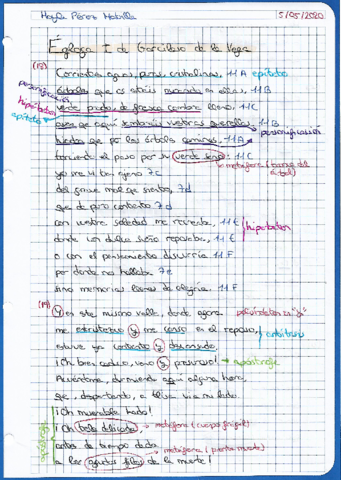 Mayla Pérez Mobilla 5/05/2020
Égloga I de Garcilaso de la Vega
(18)
Corrientes aguas, puras, cristalinas, 11A epíteto
árboles que os estáis mirando en ellas, 11B
verde prado, de fresca sombra lleno, 11C
aves que aquí sembráis vuestras querellas, 11B
hiedra que por los árboles caminas, 11A personificación
torciendo el paso por su verde seno: 11C
metáfora (tronco del árbol)
yo me vi tan ajeno 7c
del grave mal que siento, 7d
que de puro contento 7d
con vuestra soledad me recreaba, 11E
donde con dulce sueño reposaba, 11E
o con el pensamiento discurría 11F
por donde no hallaba 7e
sino memorias llenas de alegría. 11F
personificación
hipérbaton
epíteto
hipérbaton
(19)
Y en este mismo valle, donde agora polisíndeton en "y"
me entristezco y me canso en el reposo, antítesis
estuve ya contento y descansado.
¡Oh bien caduco, vano y presuroso! → apóstrofe
Acuérdome, durmiendo aquí alguna hora,
que, despertando, a Elisa vi a mi lado.
¡Oh miserable hado!
¡Oh tela delicada, → metáfora (cuerpo frágil)
antes de tiempo dada → metáfora
a los agudos filos de la muerte!
apóstrofe